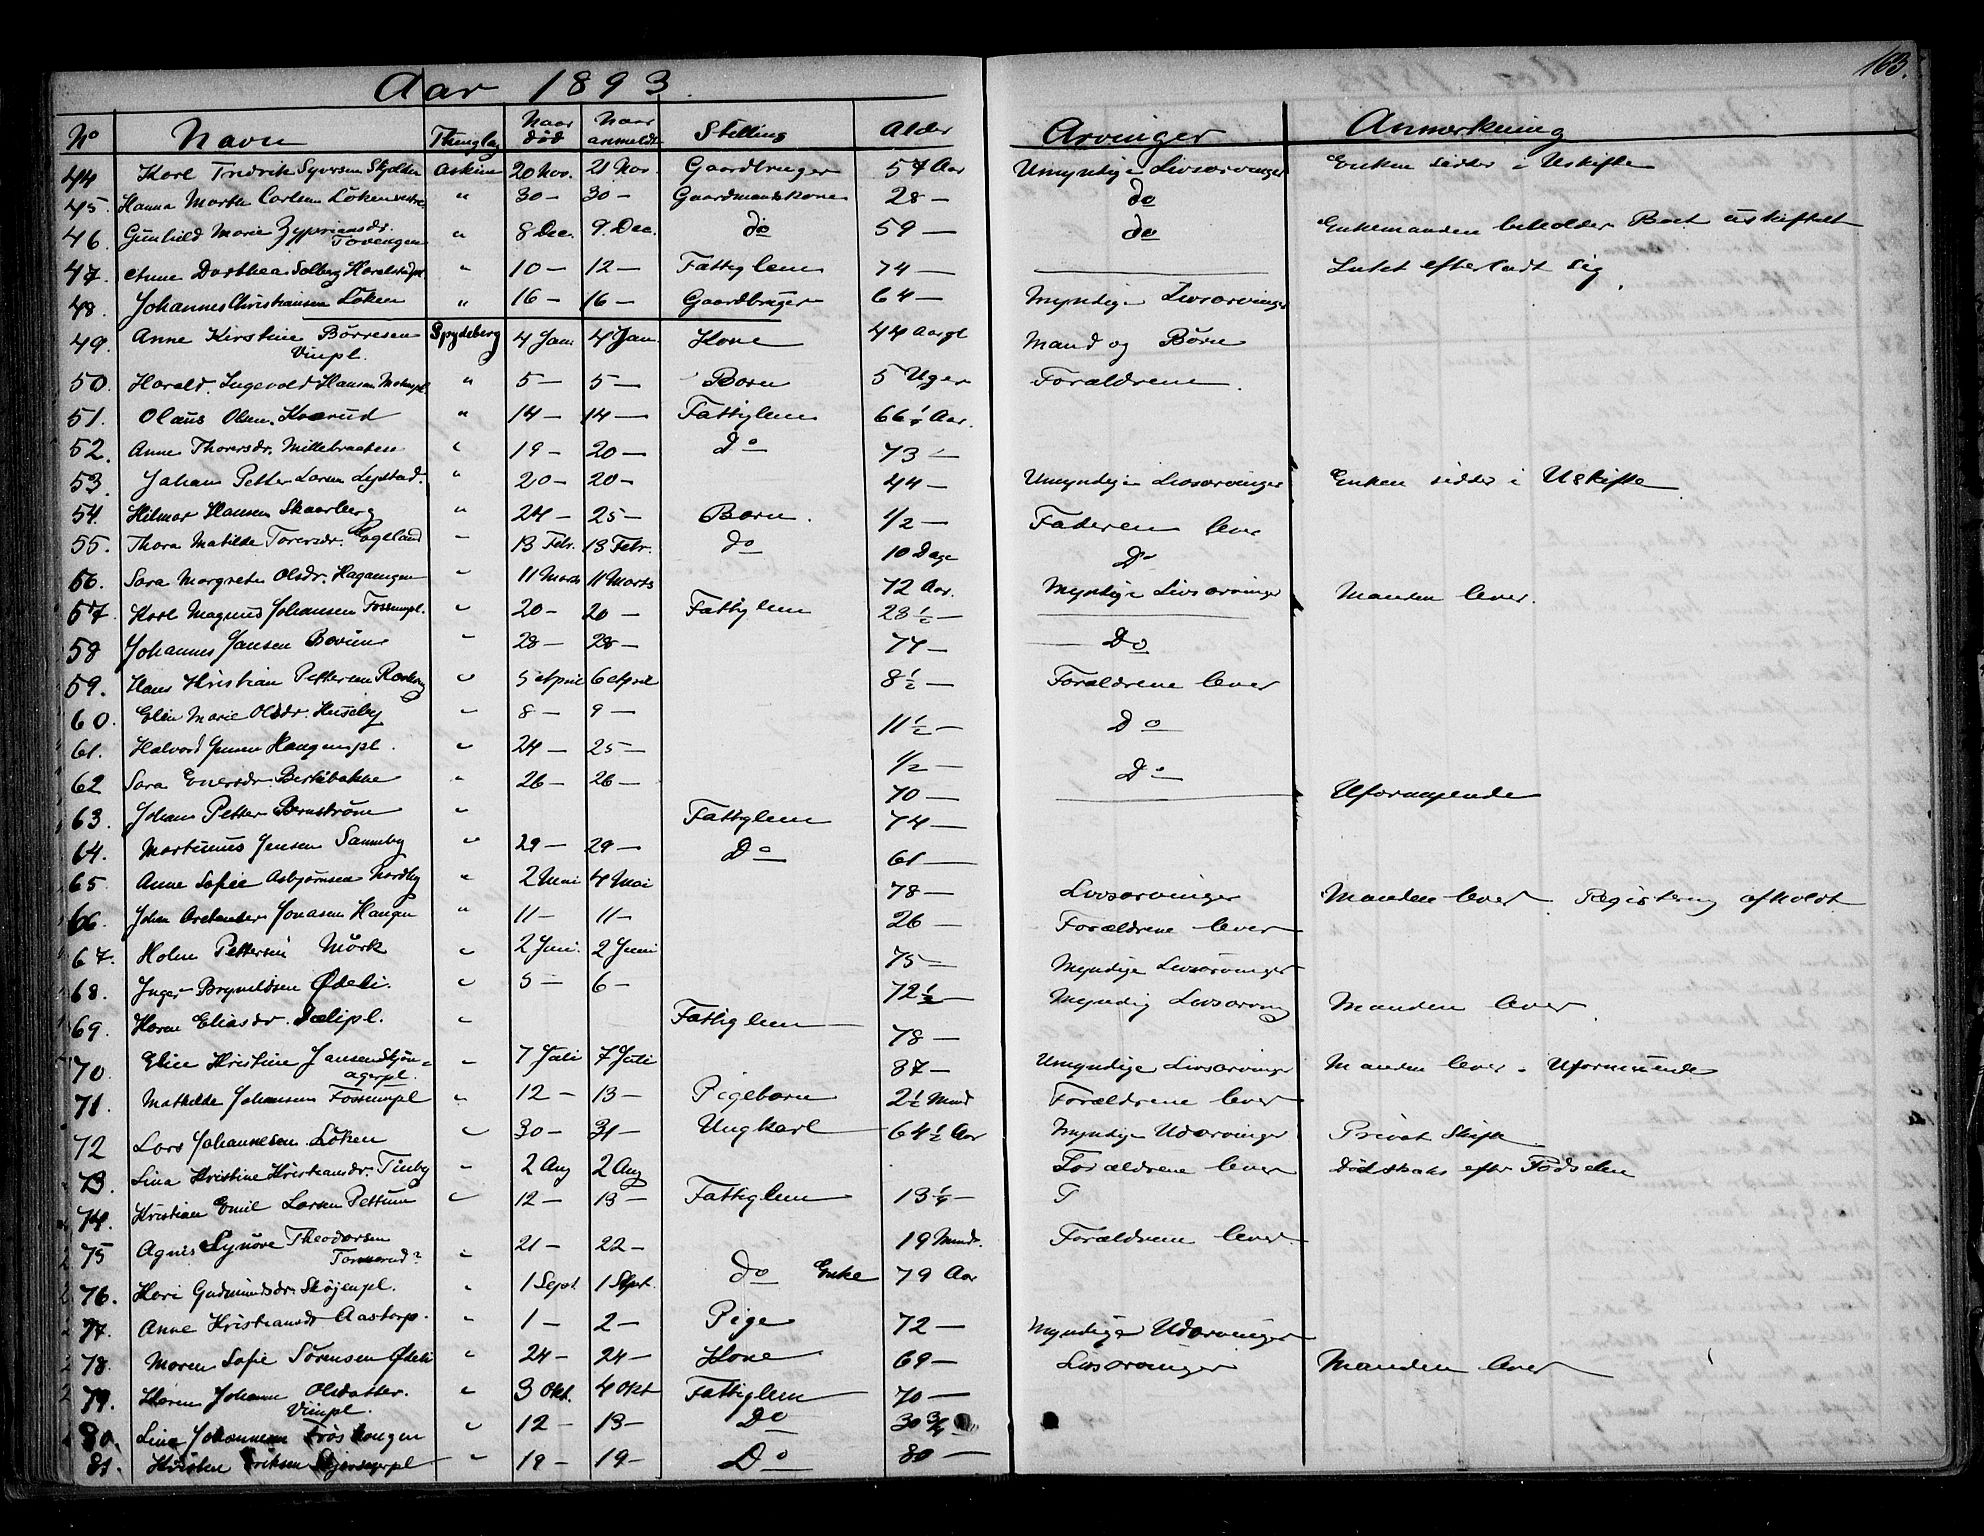 163.
Aar 1893.
No Navn Thinglag Naar død Naar anmeldt Stilling Alder Arvinger Anmerkning
44 Karl Fredrik Syversen Askim 20 Nov. 21 Nov. Gaardbruger 57 Aar Umyndige Livsarvinger Enken sidder i Uskifte
45. Hanna Marthe Carlsen Løken " 30 — 30 — Gaardmandskone 28 — do
46. Gunhild Marie " 8 Dec. 9. Dec. do 59 — do Enkemanden beholder Boet uskiftet
Tovengen
47. Anne Dorthea Solberg " 10 — 12 — Fattiglem 74 — Intet efterladt sig
48. Johannes Christiansen Løken " 16 — 16 — Gaardbruger 64 — Myndige Livsarvinger
49. Anne Kirstine Børresen Spydeberg 4 Jan 4 Jan. Kone 44 Aargl Mand og Børn
Vinpl.
50. Harald Ingevold Hansen " 5 — 5 — Barn 5 Uger Forældrene.
51. Olaus Olsen " 14 — 14 — Fattiglem 66 Aar.
52. Anne Thorersdr. Millebraaten " 19 — 20 — Do 73 —
53. Johan Petter Larsen " 20 — 20 — 44 — Umyndige Livsarvinger Enken sidder i Uskifte
54. Hilmar Hansen Skaarberg " 24 — 25 — Barn. 1/2 — Faderen lever
55. Thora Matilde Torersdr. " 13 Febr. 13 Febr. do 10 Dage Do
56. Sara Margrete Olsdr. Hagaengen " 11 Marts 11 Marts 72 Aar. Myndige Livsarvinger Manden lever.
57. Karl Magnus Johansen Fossumpl. " 20 — 20 — Fattiglem 23 1/2 —
58 Johannes Jansen " 28 — 28 — 74 — Do
59. Hans Kristian Pettersen " 5 April 6 April 8 1/2 — Forældrene lever
60. Elin Marie Olsdr. Huseby " 8 — 9 — 11 1/2 — Do
61. Halvard Jensen Haugenspl. " 24 — 25 — 1/2 — Do
62 Sara " 26 — 26 — 70 — Uformuende
63. Johan Petter " Fattiglem 74 —
64. Martinus Jensen " 29 — 29 — Do 61 —
65. Anne Sofie Asbjørnsen Nordby " 2 Mai 4 Mai 78 — Livsarvinger Manden lever. Registering afholdt
66. Johan Jonasen Haugen " 11 — 11 — 26 — Forældrene lever
67. Pettersen Mørk " 2 Juni. 2 Juni 75 — Myndige Livsarvinger
68. Inger Brynildsen Ødeli. " 5 — 6 — 72 1/2 — Myndig Livsarving Manden lever.
69. Eliasdr. " Fattiglem 78 —
70. Elise Kristine Jansen Skjøn= " 7 Juli 7 Juli 37 — Umyndige Livsarvinger Manden lever. Uformuende
agerpl.
71. Mathilde Johansen Fossumpl " 12 — 13 — Pigebarn 2 1/2 Mnd Forældrene lever
72 Lars Johannesen Løken " 30 — 31 — Ungkarl 64 1/2 Aar Myndige Udarvinger Privat Skifte
73. Lina Kristine Kristiansdr. " 2 Aug 2 Aug Forældrene lever død straks efter Fødselen
74. Kristian Emil Larsen " 12 — 13 — Fattiglem 13 1/4 —
75 Agnes Synøve Theodorsen " 21 — 22 — 19 Mndr. Forældrene lever
76. Kari Gudmundsdr. Skøienpl. " 1 Sept 1 Sept. do Enke 79 Aar
77. Anne Kristiansdr Aastorp. " 1 — 2 — Pige 72 — Myndige Udarvinger
78. Maren Sofie Sørensen Ødeli " 24 — 24 — Kone 69 — Livsarvinger Manden lever
79. Karen Johanne Olsdatter. " 3 Okt. 4 Okt Fattiglem 70 —
Vinpl.
80. Lina Johannesen " 12 — 13 — Do 30 3/4
81. " 19 — 19 — Do 80 —